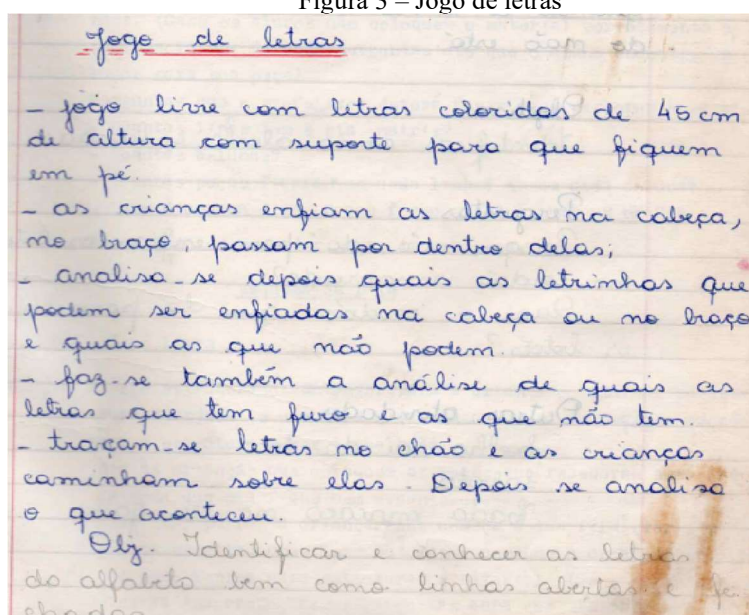 Figura 3 – Jogo de letras
Jogo de letras
- jogo livre com letras coloridas de 45 cm
de altura com suporte para que fiquem
em pé.
- as crianças enfiam as letras na cabeça,
no braço, passam por dentro delas;
- analisa-se depois quais as letrinhas que
podem ser enfiadas na cabeça ou no braço
e quais as que não podem.
- faz-se também a análise de quais as
letras que tem furo e as que não tem.
- traçam-se letras no chão e as crianças
caminham sobre elas. Depois se analisa
o que aconteceu.
Obj. Identificar e conhecer as letras
do alfabeto bem como linhas abertas e fe
chadas